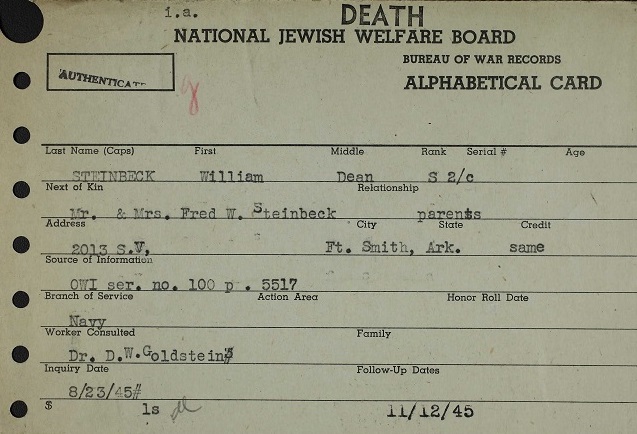 i.a. DEATH
NATIONAL JEWISH WELFARE BOARD
BUREAU OF WAR RECORDS
AUTHENTICATE
ALPHABETICAL CARD
Last Name (Caps) First Middle Rank Serial # Age
STEINBECK William Dean S 2/c
Next of Kin Relationship
Mr. & Mrs. Fred W. Steinbeck parents
Address City State Credit
2013 S.V, Ft. Smith, Ark. same
Source of Information
OWI ser. no. 100 p . 5517
Branch of Service Action Area Honor Roll Date
Navy
Worker Consulted Family
Dr. D.W.Goldstein
Inquiry Date Follow-Up Dates
8/23/45#
$ ls 11/12/45